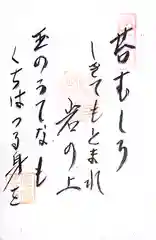 苔むしろ
しきてもとまれ
岩の上
玉のうてなも
くちはつる身を